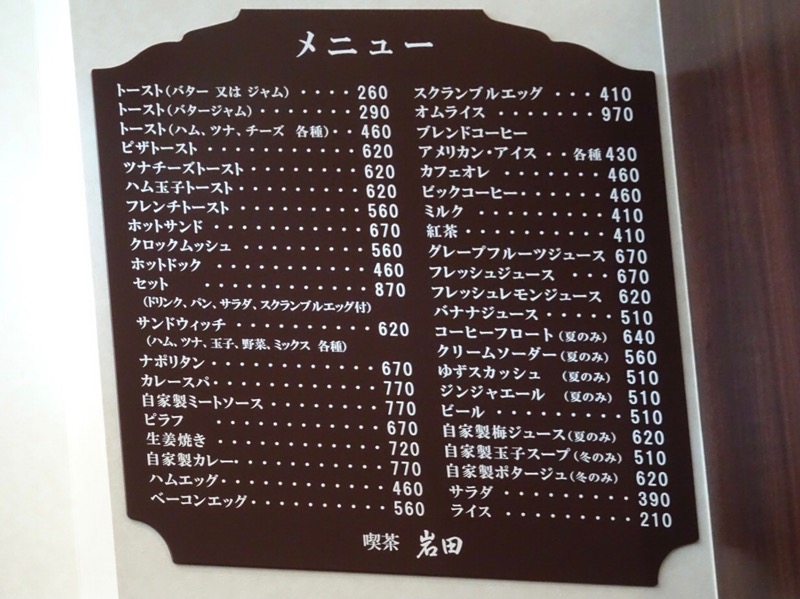 メニュー
トースト(バター 又は ジャム) ････ 260
トースト(バタージャム) ･･･････ 290
トースト(ハム、ツナ、チーズ 各種)･･ 460
ピザトースト ･･･････････ 620
ツナチーズトースト ････････ 620
ハム玉子トースト･････････ 620
フレンチトースト ･････････ 560
ホットサンド ･･･････････ 670
クロックムッシュ ･････････ 560
ホットドック ･･････････ 460
セット ･･･････････ 870
(ドリンク、パン、サラダ、スクランブルエッグ付)
サンドウィッチ ･･････････ 620
(ハム、ツナ、玉子、野菜、ミックス 各種)
ナポリタン ････････････ 670
カレースパ････････････ 770
自家製ミートソース ････････ 770
ピラフ ････････････ 670
生姜焼き ････････････ 720
自家製カレー･･････････ 770
ハムエッグ･･･････････ 460
ベーコンエッグ･････････ 560
スクランブルエッグ ･･･ 410
オムライス ･･･････ 970
ブレンドコーヒー
アメリカン・アイス ･･ 各種 430
カフェオレ ･･･････ 460
ビックコーヒー･･････ 460
ミルク ･････････ 410
紅茶･･････････ 410
グレープフルーツジュース 670
フレッシュジュース ･･･ 670
フレッシュレモンジュース 620
バナナジュース･････ 510
コーヒーフロート(夏のみ) 640
クリームソーダー(夏のみ) 560
ゆずスカッシュ (夏のみ) 510
ジンジャエール (夏のみ) 510
ビール ･････････ 510
自家製梅ジュース(夏のみ) 620
自家製玉子スープ(冬のみ) 510
自家製ポタージュ(冬のみ) 620
サラダ ･････････ 390
ライス ･････････ 210
喫茶 岩田